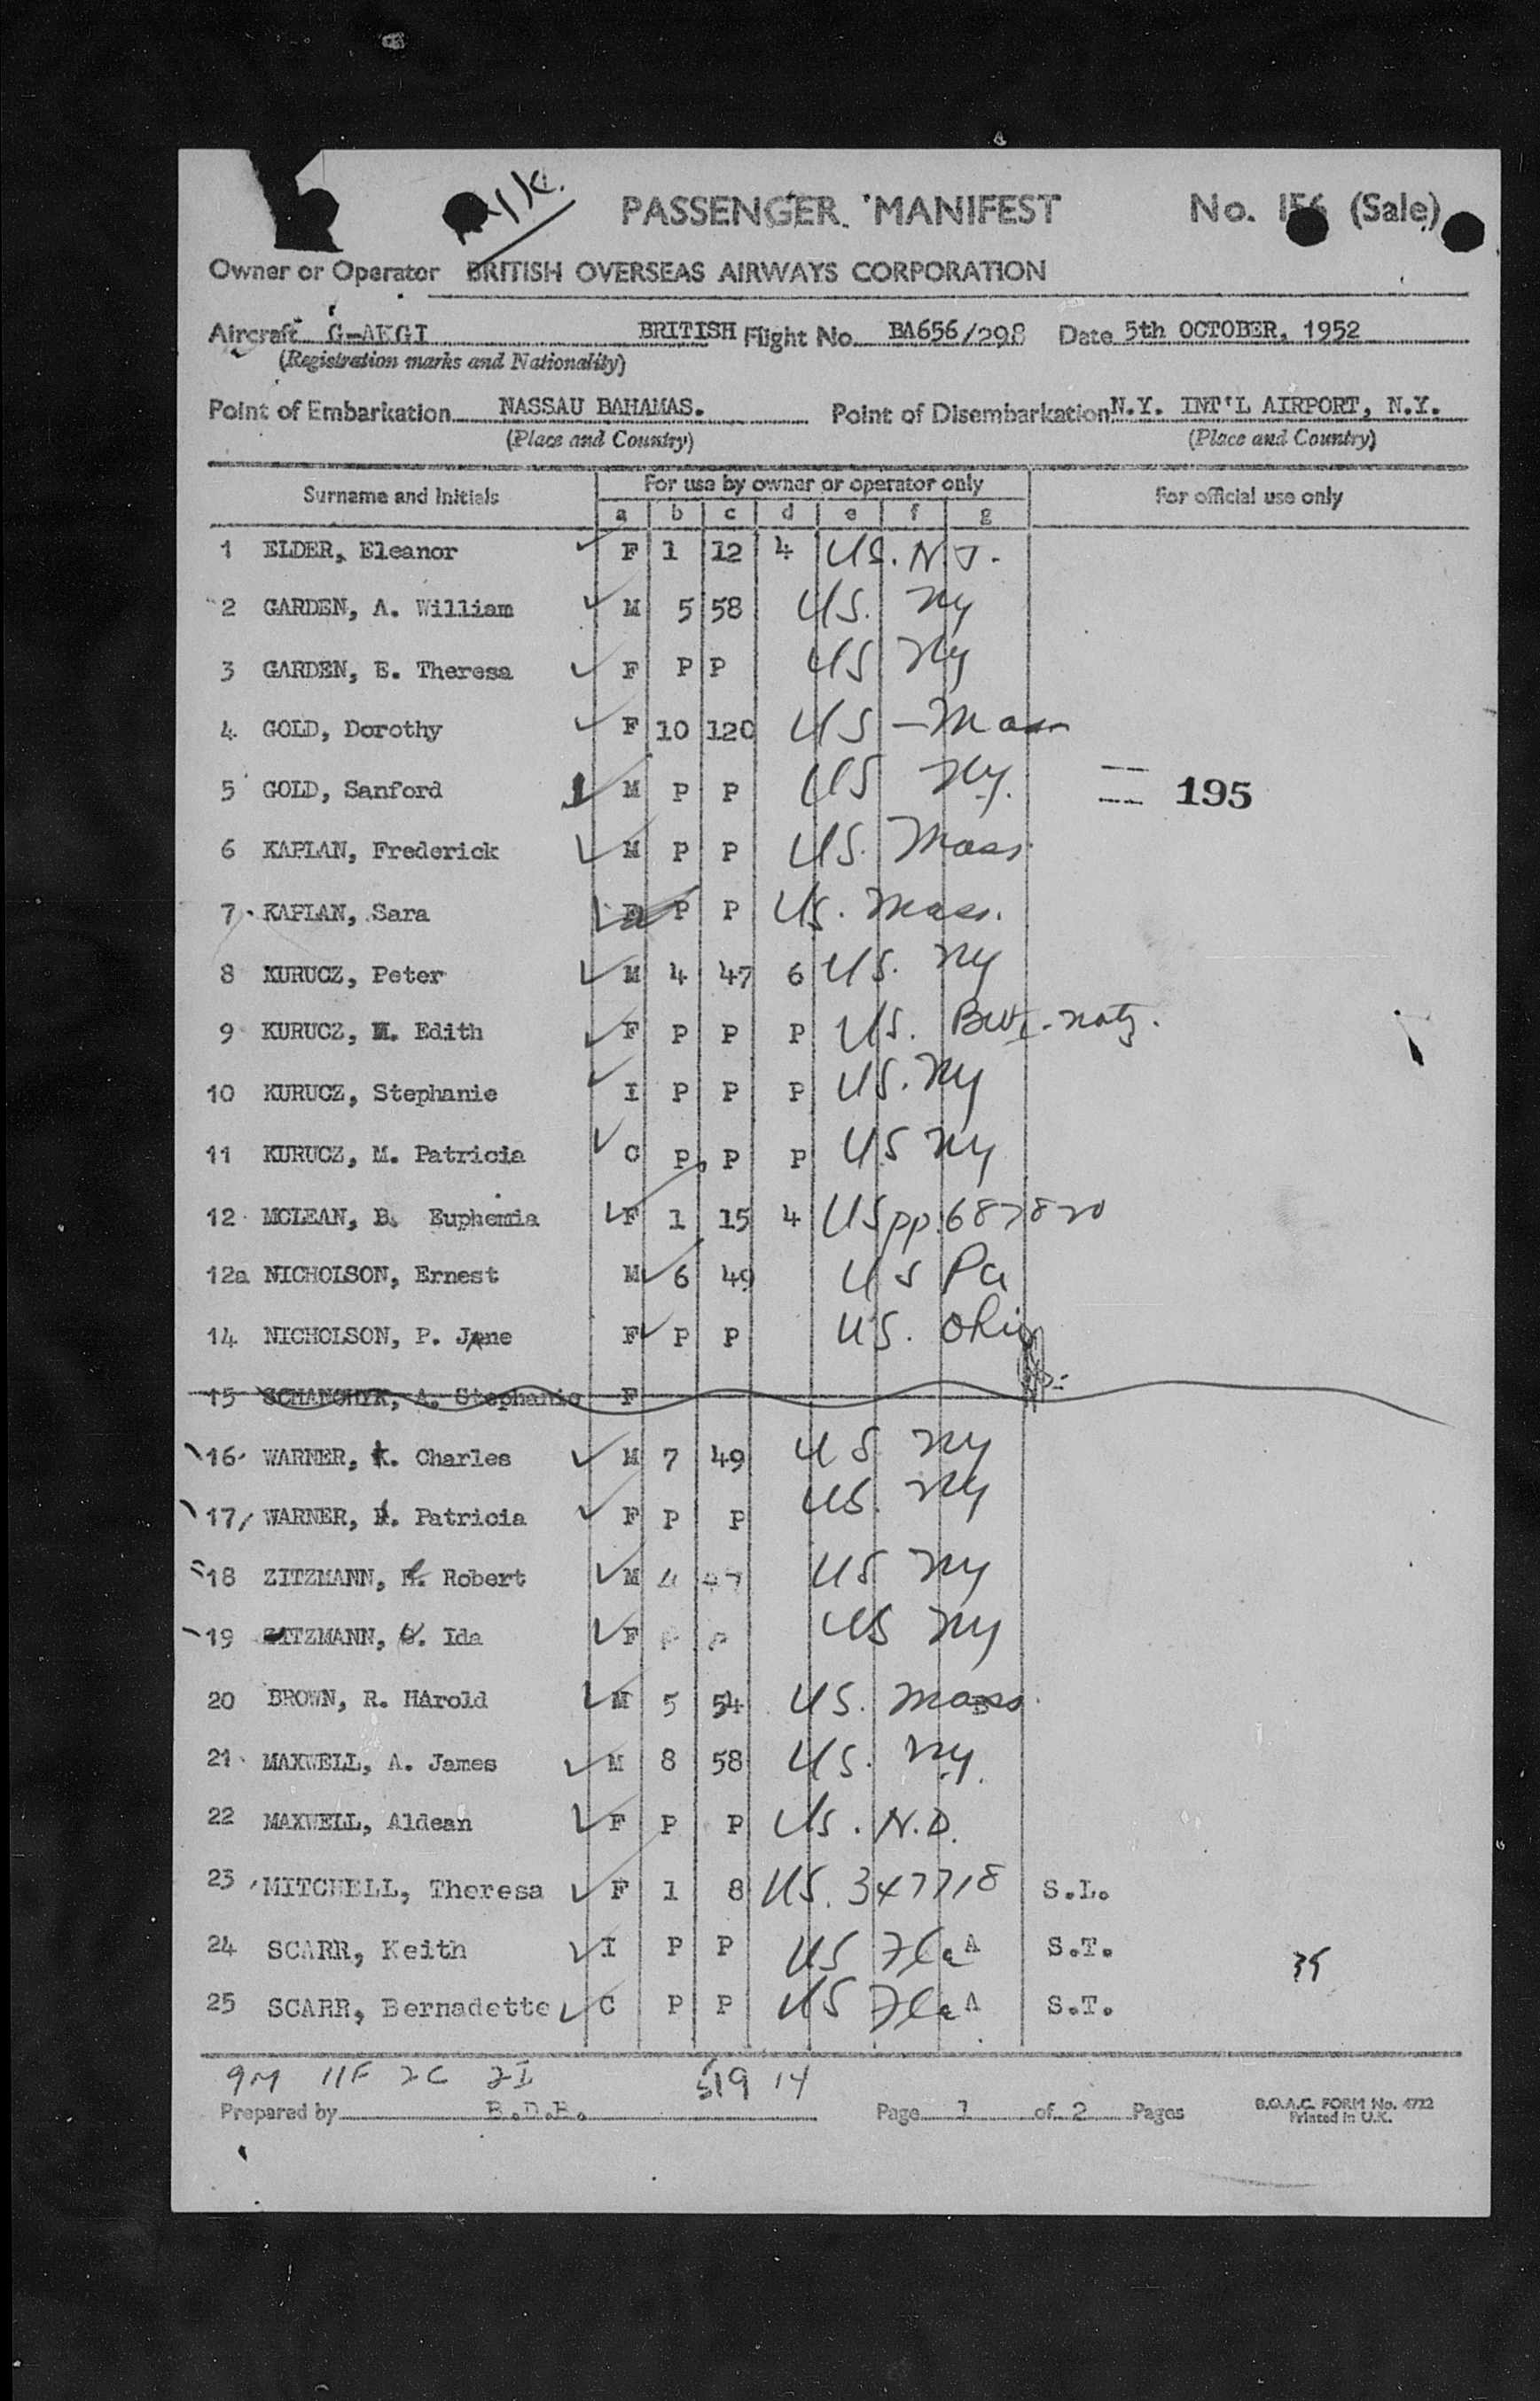 PASSENGER MANIFEST No. 156 (Sale)
Owner or Operator BRITISH OVERSEAS AIRWAYS CORPORATION
Aircraft G-AKGI BRITISH Flight No. BA656/298 Date 5th OCTOBER, 1952
(Registration marks and Nationality)
Point of Embarkation NASSAU BAHAMAS. Point of Disembarkation N.Y. INT'L AIRPORT, N.Y.
(Place and Country) (Place and Country)
Surname and Initials For use by owner or operator only For official use only
a b c d e f g
1 ELDER, Eleanor F 1 12 4 US. N.J.
2 GARDEN, A. William M 5 58 US. NY
3 GARDEN, E. Theresa F P P US NY
4 GOLD, Dorothy F 10 120 US - Mass
5 GOLD, Sanford M P P US NY. 195
6 KAPLAN, Frederick M P P US. Mass.
7 KAPLAN, Sara F P P US. Mass.
8 KURUCZ, Peter M 4 47 6 US. NY
9 KURUCZ, M. Edith F P P P US. BWI-natz.
10 KURUCZ, Stephanie I P P P US. NY
11 KURUCZ, M. Patricia C P P P US NY
12 MCLEAN, B. Euphemia F 1 15 4 US pp. 687820
12a NICHOLSON, Ernest M 6 49 US Pa
14 NICHOLSON, P. Jane F P P US. Ohio
15 SCHANCHYK, A. Stephanie F
16 WARNER, K. Charles M 7 49 US NY
17 WARNER, Patricia F P P US. NY
18 ZITZMANN, Robert M 4 47 US NY
19 ZITZMANN, Ida F P P US NY
20 BROWN, R. HArold M 5 54 US. Mass.
21 MAXWELL, A. James M 8 58 US. NY.
22 MAXWELL, Aldean F P P US. N.D.
23 MITCHELL, Theresa F 1 8 US. 347718 S.L.
24 SCARR, Keith I P P US Fla A S.T.
25 SCARR, Bernadette C P P US Fla A S.T.
35
9M 11F 2C 2I 519 14
Prepared by B.D.B. Page 1 of 2 Pages B.O.A.C. FORM No. 4722
Printed in U.K.